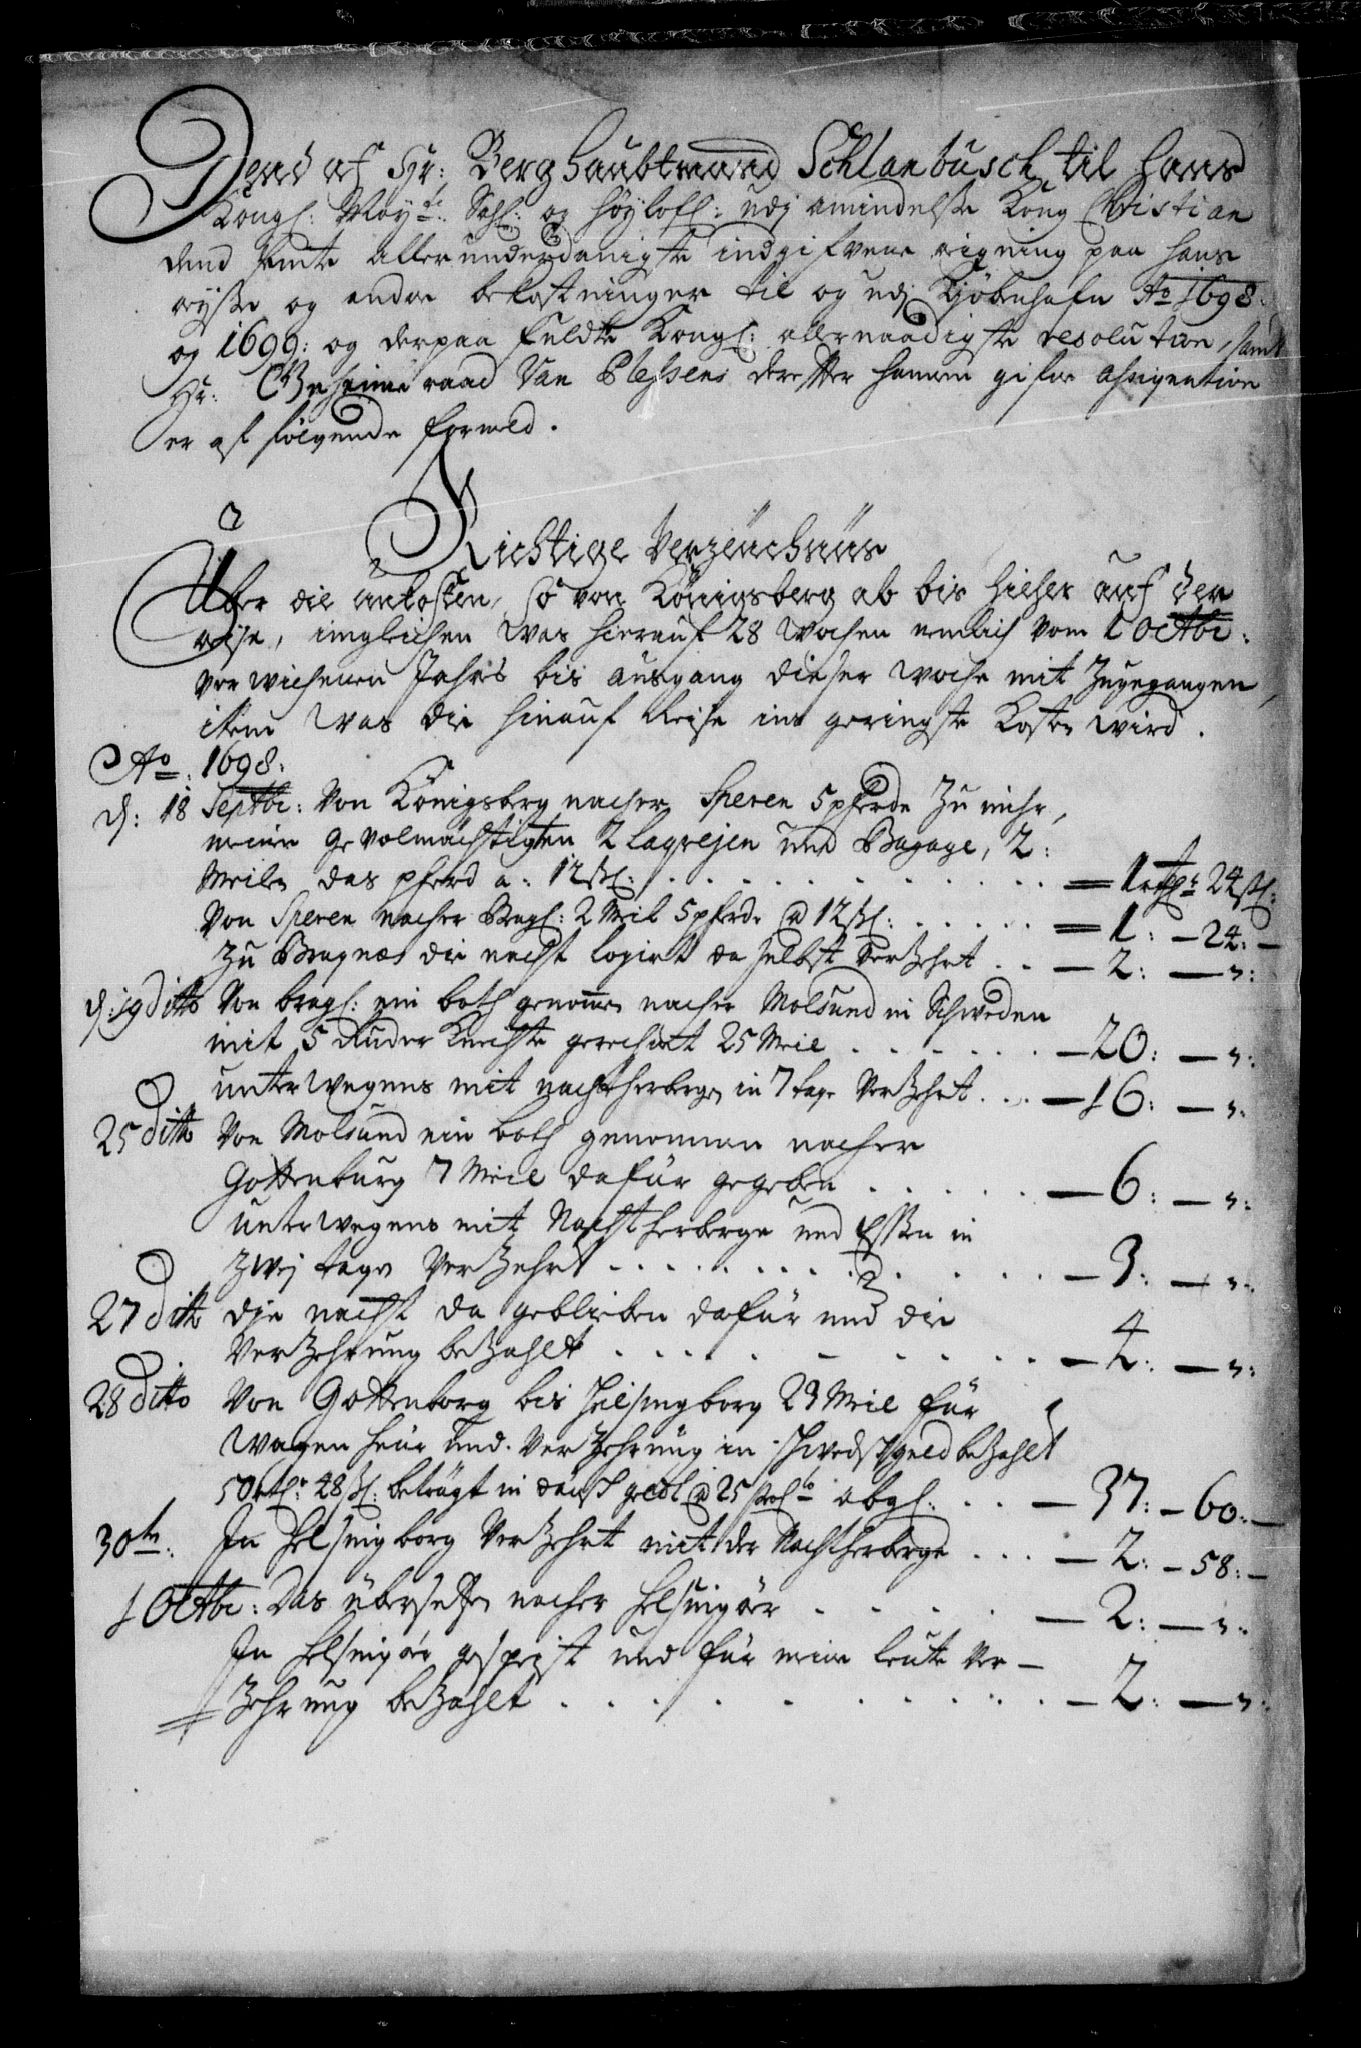 Dend af Hr: Berghaubtmand Schlanbusch til hans
Kongl: May:tt Sahl: og høylofl: udj amindelse Kong Christian
dend femte allerunderdanigste indgifvene reigning paa hans
reyse og andre bekostninger til og udj Kjøbenhafn A:o 1698:
og 1699: og derpaa fuldte Kongl: allernaadigste resolution, samt
Hr: Geheime raad Van Plessens derefter hannem gifne assignation
er af følgende formeld.
Richtige Verzeüchnüs
Über die unkosten, so von Königsberg ab bis hieher auf der
reise, imgleichen was hierauf 28 wochen nemlich vom 1 Octbr:
verwichenen Jahrs bis ausgang dieser woche mit zugegangen,
item was die hinauf Reise ins geringste kosten wird.
A:o 1698:
d: 18 Septbr: Von Königsberg nacher Speren 5 pferde zu mihr,
meine gevolmächtigten 2 laqvejen und Bagage, 2:
Meilen das pferd a: 12 ßl: = 1 rthlr 24 ßl:
Von Speren nacher Bragl: 2 Meil 5 pferde a 12 ßl: = 1: – 24: –
Zu Bragnæs die nacht logirt daselbst verzehrt – 2: – „:
d: 19 ditto Von bragl: ein both genomen nacher Molsund in Schweden
mit 5 Ruder Knechte gerechnet 25 Meil – 20: – „:
unterwegens mit nachtherberge in 7 tage verzehrt – 16: – „:
25 ditto Von Molsund ein both genommen nacher
Gottenburg 7 Meil dafür gegeben – 6: – „:
unterwegens mit Nachtherberge und Essen in
zwej tagen verzehrt – 3: – „:
27 ditto die nacht da geblieben dafür und die
verzehrung bezahlt – 4: – „:
28 ditto Von Gottenborg bis Helsingborg 23 Meil für
wagen heür und verzehrung in schwedsch geld bezahlt
50 rthlr 48 ßl: beträgt in dänsch geld a 25 proc:to abgl: – 37: – 60: –
30tn: In Helsingborg verzehrt mit der Nachtherberge – 2: – 58: –
1 Octbr: Das übersetzen nacher Helsingör – 2: – „:
In Helsingör gespeist und für meine leute ver–
zehrung bezahlt – 2: – „: